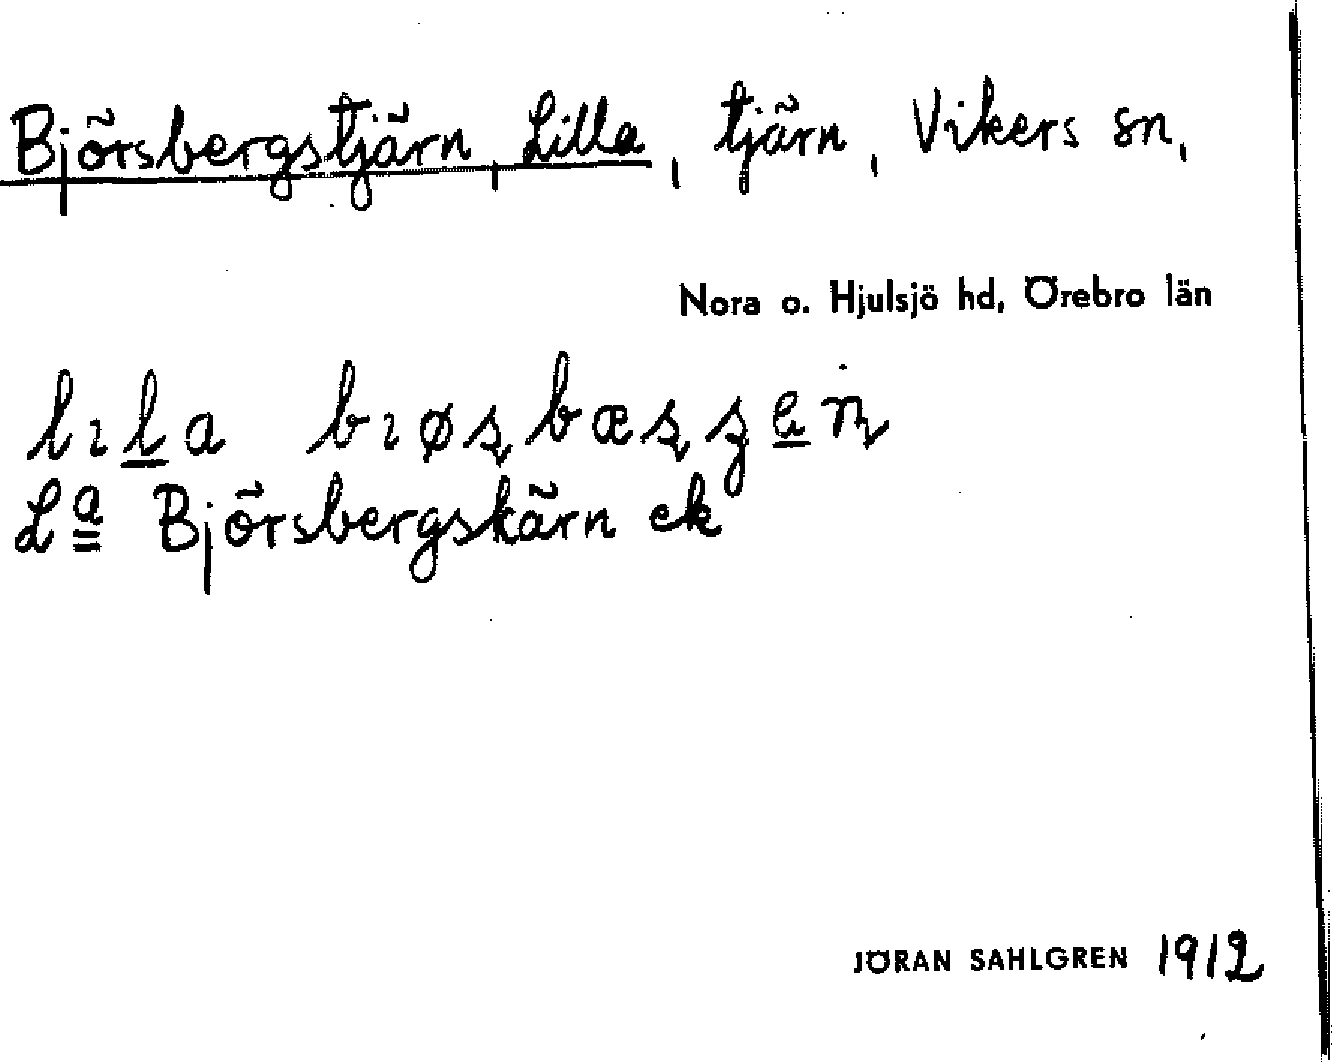 Björsbergstjärn, Lilla, tjärn, Vikers sn,
Nora o. Hjulsjö hd, Örebro län
La Björsbergskärn ek
JÖRAN SAHLGREN 1912